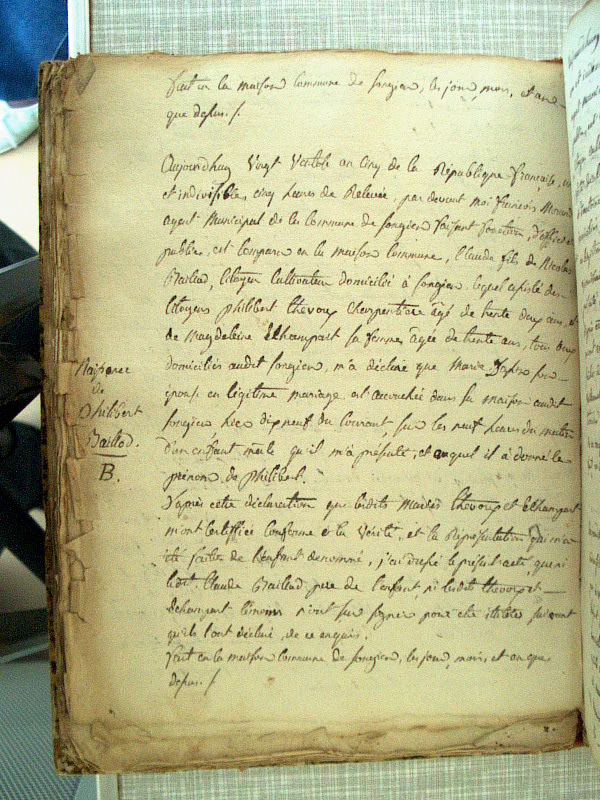 fait en la maison Commune de songieu, les jour, mois, et an
que dessus. /.
Aujourdhuy Vingt Ventose an Cinq de la République française, une
et indivisible, cinq heures de Relevée, par devant moi françois
agent Municipal de la Commune de songieu faisant fonction, d'officier
public, est comparu en la maison commune, Claude fils de Nicolas
Baillod, Citoyen Cultivateur domicilié à songieu, lequel assisté des
Citoyens philibert thevoux Charpentier âgé de trente deux ans, et
de Magdeleine Echampart sa femme, âgée de trente ans, tous deux
domiciliés audit songieu, m'a déclaré que Marie son
épouse en légitime mariage est accouchée dans sa maison audit
songieu hier dix neuf du Courant, sur les neuf heures du matin
d'un enfant mâle qu'il m'a présenté, et auquel il a donné le
prénom de philibert.
D'après cette déclaration que lesdits mariés thevoux et Echampart
m'ont Certifiée Conforme à la Vérité, et la Représentation qui m'a
été faite de l'enfant dénommé, j'ai dressé le présent acte, que ni
ledit Claude Baillod père de l'enfant ni lesdits thevoux et
Echampart témoins n'ont su signer pour être illitérés suivant
qu'ils l'ont déclaré, de ce enquis.
fait en la maison Commune de songieu, les jour, mois, et an que
dessus. /
Naissance
de
Philibert
Baillod.
B.